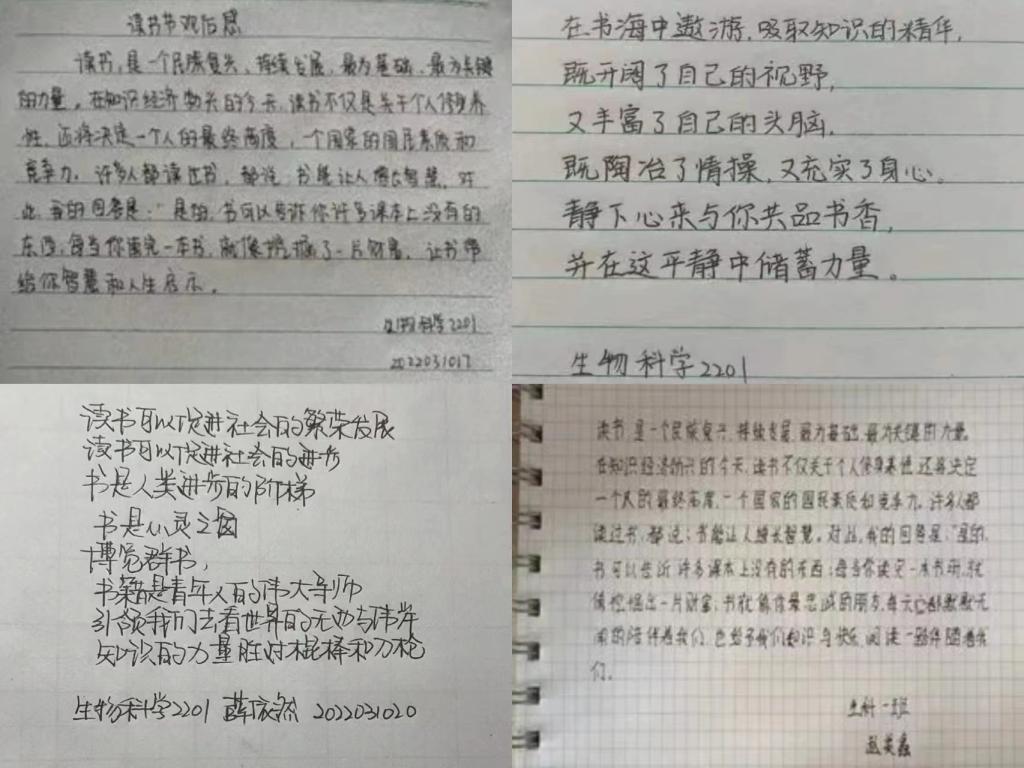 读书节观后感
读书,是一个民族复兴、持续发展、最为基础、最为关键
的力量。在知识经济勃兴的今天,读书不仅是关于个人修身养
性,还将决定一个人的最终高度,一个国家的国民素质和
竞争力。许多人都读过书,都说:书能让人增长智慧。对
此,我的回答是:“是的,书可以告诉你许多课本上没有的
东西,每当你读完一本书,就像挖掘了一片财富,让书带
给你智慧和人生启示。
生物科学2201
2022031017
在书海中遨游,吸取知识的精华,
既开阔了自己的视野,
又丰富了自己的头脑,
既陶冶了情操,又充实了身心。
静下心来与你共品书香,
并在这平静中储蓄力量。
生物科学2201
读书可以促进社会的繁荣发展
读书可以促进社会的进步
书是人类进步的阶梯
书是心灵之窗
博览群书,
书籍是青年人的伟大导师
引领我们去看世界的无边与
知识的力量胜过棍棒和刀枪
生物科学2201 薛依然 2022031020
读书,是一个民族复兴、持续发展、最为基础、最为关键的力量。
在知识经济勃兴的今天,读书不仅关于个人修身养性,还将决定
一个人的最终高度,一个国家的国民素质和竞争力。许多人都
读过书,都说:书能让人增长智慧。对此,我的回答是:“是的,
书可以告诉许多课本上没有的东西;每当你读完一本书时,就
像挖掘出一片财富;书就像你最忠诚的朋友,每天都默默无
闻的陪伴着我们,也给予我们知识与快乐,阅读一路伴随着我
们。
生科一班